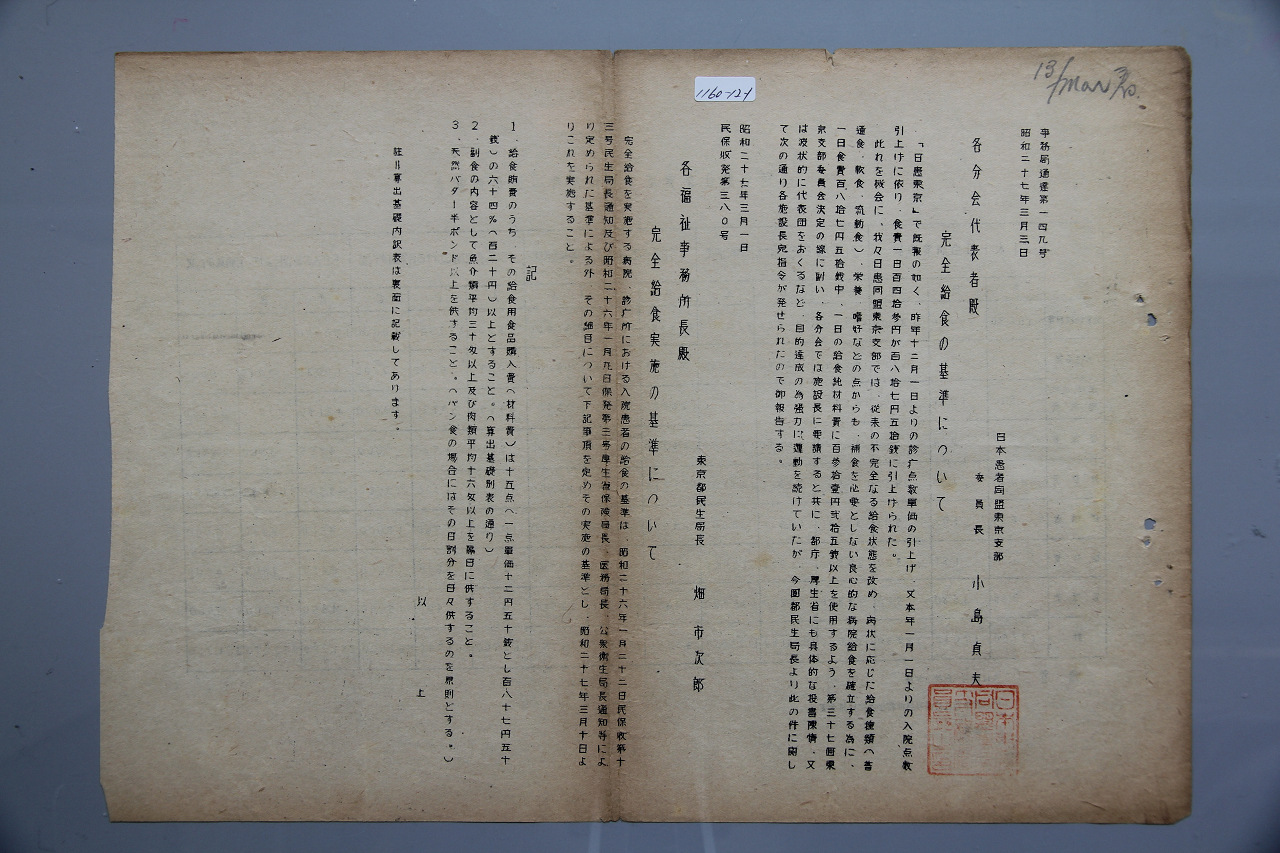 1160-12-1
13/Mar
事務局通達第一四九号
昭和二十七年三月三日
日本患者同盟東京支部
委員長 小島貞夫
各分会代表者殿
完全給食の基準について
「日患東京」で既報の如く、昨年十二月一日よりの診疗点数単価の引上げ、又本年一月一日よりの入院点数
引上げに依り、食費一日百四拾参円が百八拾七円五拾銭に引上げられた。
此れを機会に、我々日患同盟東京支部では、従来の不完全なる給食状態を改め、病状に応じた給食種類（普
通食、軟食、流動食）、栄養、嗜好などの点からも、補食を必要としない良心的な病院給食を確立する為に、
一日食費百八拾七円五拾銭中、一日の給食純材料費に百参拾壹円弐拾五銭以上を使用するよう、第三十七回東
京支部委員会決定の線に副い、各分会では施設長に要請すると共に、都庁、厚生省にも具体的な投書陳情、又
は波状的に代表団をおくるなど、目的達成の為強力に運動を続けていたが、今回都民生局長より此の件に関し
て次の通り各施設長宛指令が発せられたので御報告する。
昭和二十七年三月一日
民保收発第三八〇号
東京都民生局長 畑市次郎
各福祉事務所長殿
完全給食実施の基準について
完全給食を実施する病院、診疗所における入院患者の給食の基準は、昭和二十六年一月二十二日民保收第十
三号民生局長通知及び昭和二十六年一月九日保発第三号厚生省保険局長、医務局長、公衆衛生局長通知等によ
り定められた基準による外、その細目について下記事項を定めその実施の基準とし、昭和二十七年三月十日よ
りこれを実施すること。
記
1、給食賄費のうち、その給食用食品購入費（材料費）は十五点（一点単価十二円五十銭とし百八十七円五十
銭）の六十四％（百二十円）以上とすること。（算出基礎別表の通り）
2、副食の内容として魚介類平均三十匁以上及び肉類平均十六匁以上を隔日に供すること。
3、天然バター半ポンド以上を供すること。（パン食の場合にはその日割分を日々供するのを原則とする。）
以上
註＝算出基礎内訳表は裏面に記載してあります。